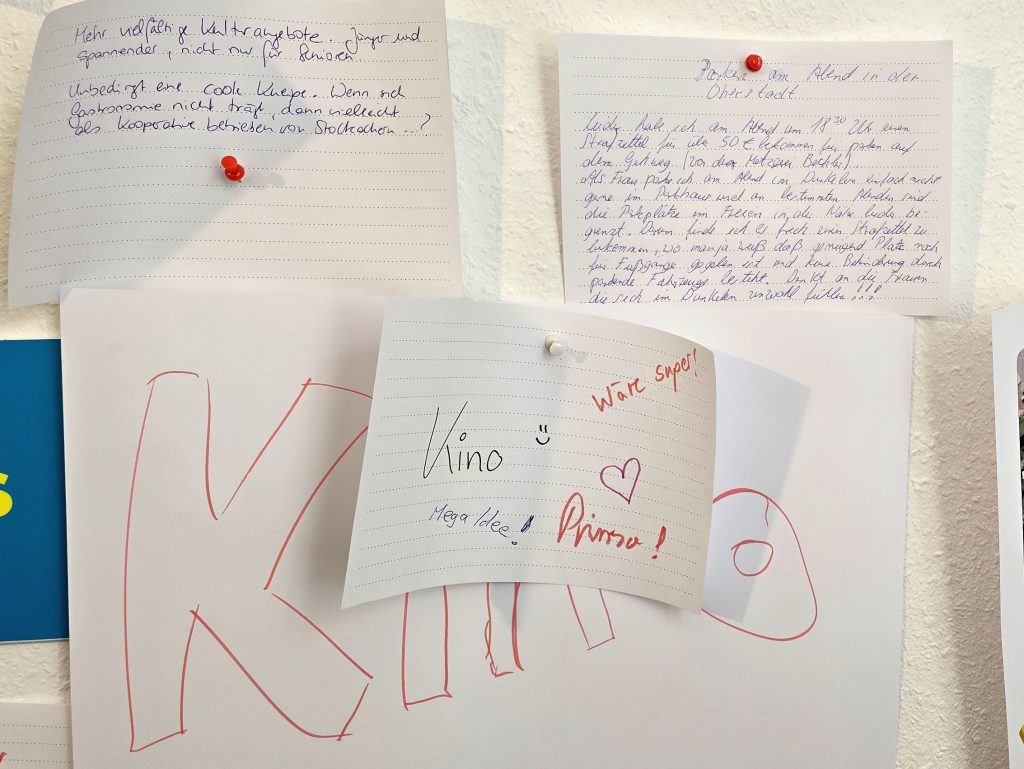 Mehr vielfältige Kulturangebote. Jünger und
spannender, nicht nur für Senioren
Unbedingt eine coole Kneipe. Wenn sich
Gastronomie nicht trägt, dann vielleicht
als Kooperative betrieben von Stockachern...?
Parken am Abend in der
Oberstadt
Leider habe ich am Abend um 18 30 Uhr einen
Strafzettel für über 50 € bekommen für parken auf
dem Gehweg (vor der Metzerei
Als Frau parke ich am Abend im Dunkelen einfach nicht
gerne im Parkhaus und an bestimmten Abenden sind
die Parkplätze im Freien in der Nähe leider be-
grenzt. Darum finde ich es frech einen Strafzettel zu
bekommen, wo man ja weiß daß genügend Platz noch
für Fußgänger gegeben ist und keine Behinderung durch
parkende Fahrzeuge besteht. Denkt an die Frauen
die sich im Dunkelen unwohl fühlen!!!
Wäre super!
Kino
Mega Idee!
Prima!
Kino
s